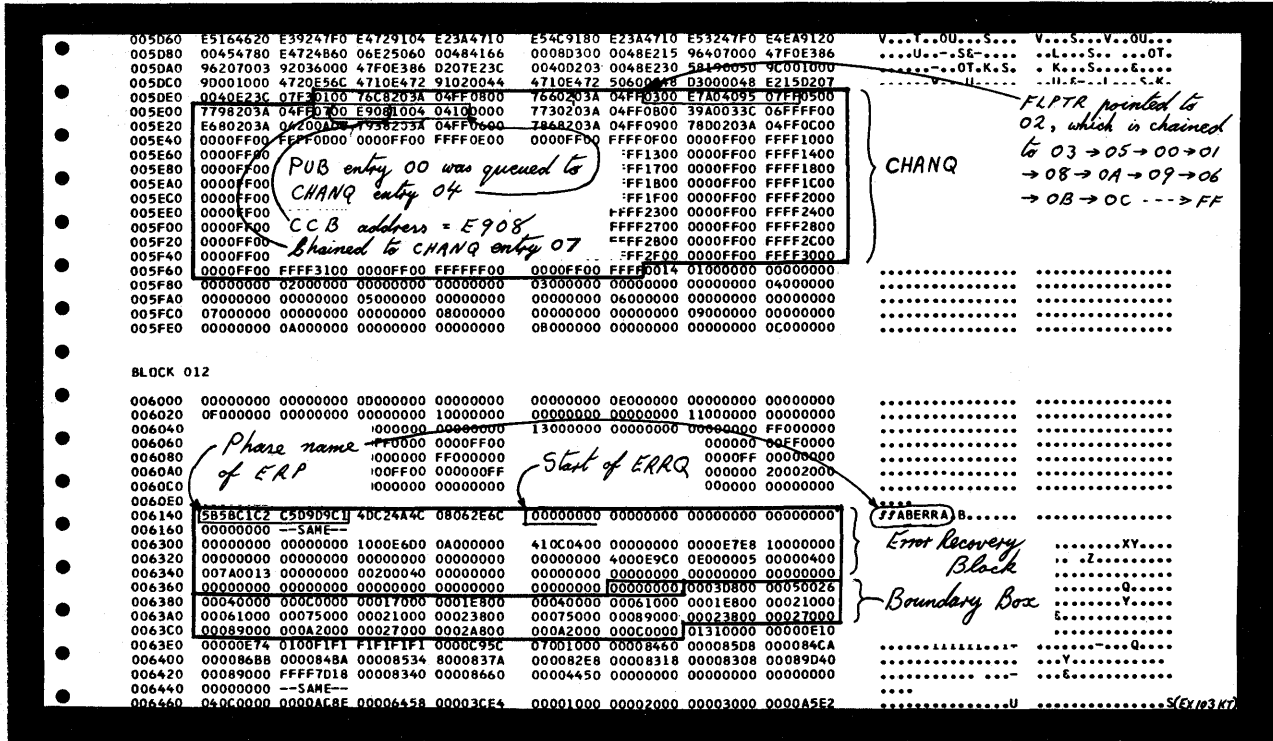 005D60 E5164620 E39247F0 E4729104 E23A4710 E54C9180 E23A4710 E53247F0 E4EA9120 V...T..OU...S... V...S...V..OU...
005D80 00454780 E4724B60 06E25060 00484166 0008D300 0048E215 96407000 47F0E386
005DA0 96207003 92036000 47F0E386 D207E23C 00400203 0048E230 58190050 9C001000
005DC0 90001000 4720E56C 4710E472 91020044 4710E472 50600048 D3000048 E215D207
005DE0 0040E23C 07F30100 76C8203A 04FF0800 7660203A 04FF0300 E7A04095 07FF0500
005E00 7798203A 04FF0700 E9081004 04100000 7730203A 04FF0B00 39A0033C 06FFFF00
005E20 E680203A 04200A00 7938203A 04FF0600 7868203A 04FF0900 7800203A 04FF0C00
005E40 0000FF00 FFFF0D00 0000FF00 FFFF0E00 0000FF00 FFFF0F00 0000FF00 FFFF1000
005E60 0000FF00 FF1300 0000FF00 FFFF1400
005E80 0000FF00 FF1700 0000FF00 FFFF1800
005EA0 0000FF00 FF1B00 0000FF00 FFFF1C00
005EC0 0000FF00 FF1F00 0000FF00 FFFF2000
005EE0 0000FF00 FFFF2300 0000FF00 FFFF2400
005F00 0000FF00 FFFF2700 0000FF00 FFFF2800
005F20 0000FF00 FFFF2B00 0000FF00 FFFF2C00
005F40 0000FF00 FF2F00 0000FF00 FFFF3000
005F60 0000FF00 FFFF3100 0000FF00 FFFFFF00 0000FF00 FFFF0014 01000000 00000000
005F80 00000000 02000000 00000000 00000000 03000000 00000000 00000000 04000000
005FA0 00000000 00000000 05000000 00000000 00000000 06000000 00000000 00000000
005FC0 07000000 00000000 00000000 08000000 00000000 00000000 09000000 00000000
005FE0 00000000 0A000000 00000000 00000000 0B000000 00000000 00000000 0C000000
PUB entry 00 was queued to
CHANQ entry 04
CCB address = E908
Chained to CHANQ entry 07
CHANQ
FLPTR pointed to
02, which is chained
to 03 → 05 → 00 → 01
→ 08 → 0A → 09 → 06
→ 0B → 0C ---> FF
BLOCK 012
006000 00000000 00000000 0D000000 00000000 00000000 0E000000 00000000 00000000
006020 0F000000 00000000 00000000 10000000 00000000 00000000 11000000 00000000
006040 00000000 13000000 00000000 00000000 FF000000
006060 0000FF00 000000 00FF0000
006080 000000 FF000000 0000FF 00000000
0060A0 00FF00 000000FF 000000 20002000
0060C0 000000 00000000 000000 00000000
0060E0
Phase name
of ERP
Start of ERRQ
006140 5B5BC1C2 C5D9D9C1 4DC24A4C 08062E6C 00000000 00000000 00000000 00000000 $$ABERRA B......
006160 00000000 --SAME--
006300 00000000 00000000 1000E600 0A000000 410C0400 00000000 0000E7E8 10000000 XY....
006320 00000000 00000000 00000000 00000000 00000000 4000E9C0 0E000005 00000400
006340 007A0013 00000000 00200040 00000000 00000000 00000000 00000000 00000000
006360 00000000 00000000 00000000 00000000 00000000 00000000 0003D800 00050026
006380 00040000 000C0000 00017000 0001E800 00040000 00061000 0001E800 00021000
0063A0 00061000 00075000 00021000 00023800 00075000 00089000 00023800 00027000
0063C0 00089000 000A2000 00027000 0002A800 000A2000 000C0000 01310000 00000E10
0063E0 00000E74 0100F1F1 F1F1F1F1 0000C95C 070D1000 00008460 000085D8 000084CA
006400 000086B8 000084BA 00008534 8000837A 000082E8 00008318 00008308 00089D40
006420 00089000 FFFF7D18 00008340 00008660 00004450 00000000 00000000 00000000
006440 00000000 --SAME--
006460 040C0000 0000AC8E 00006458 00003CE4 00001000 00002000 00003000 0000A5E2
Error Recovery
Block
Boundary Box
(EX103 KT)